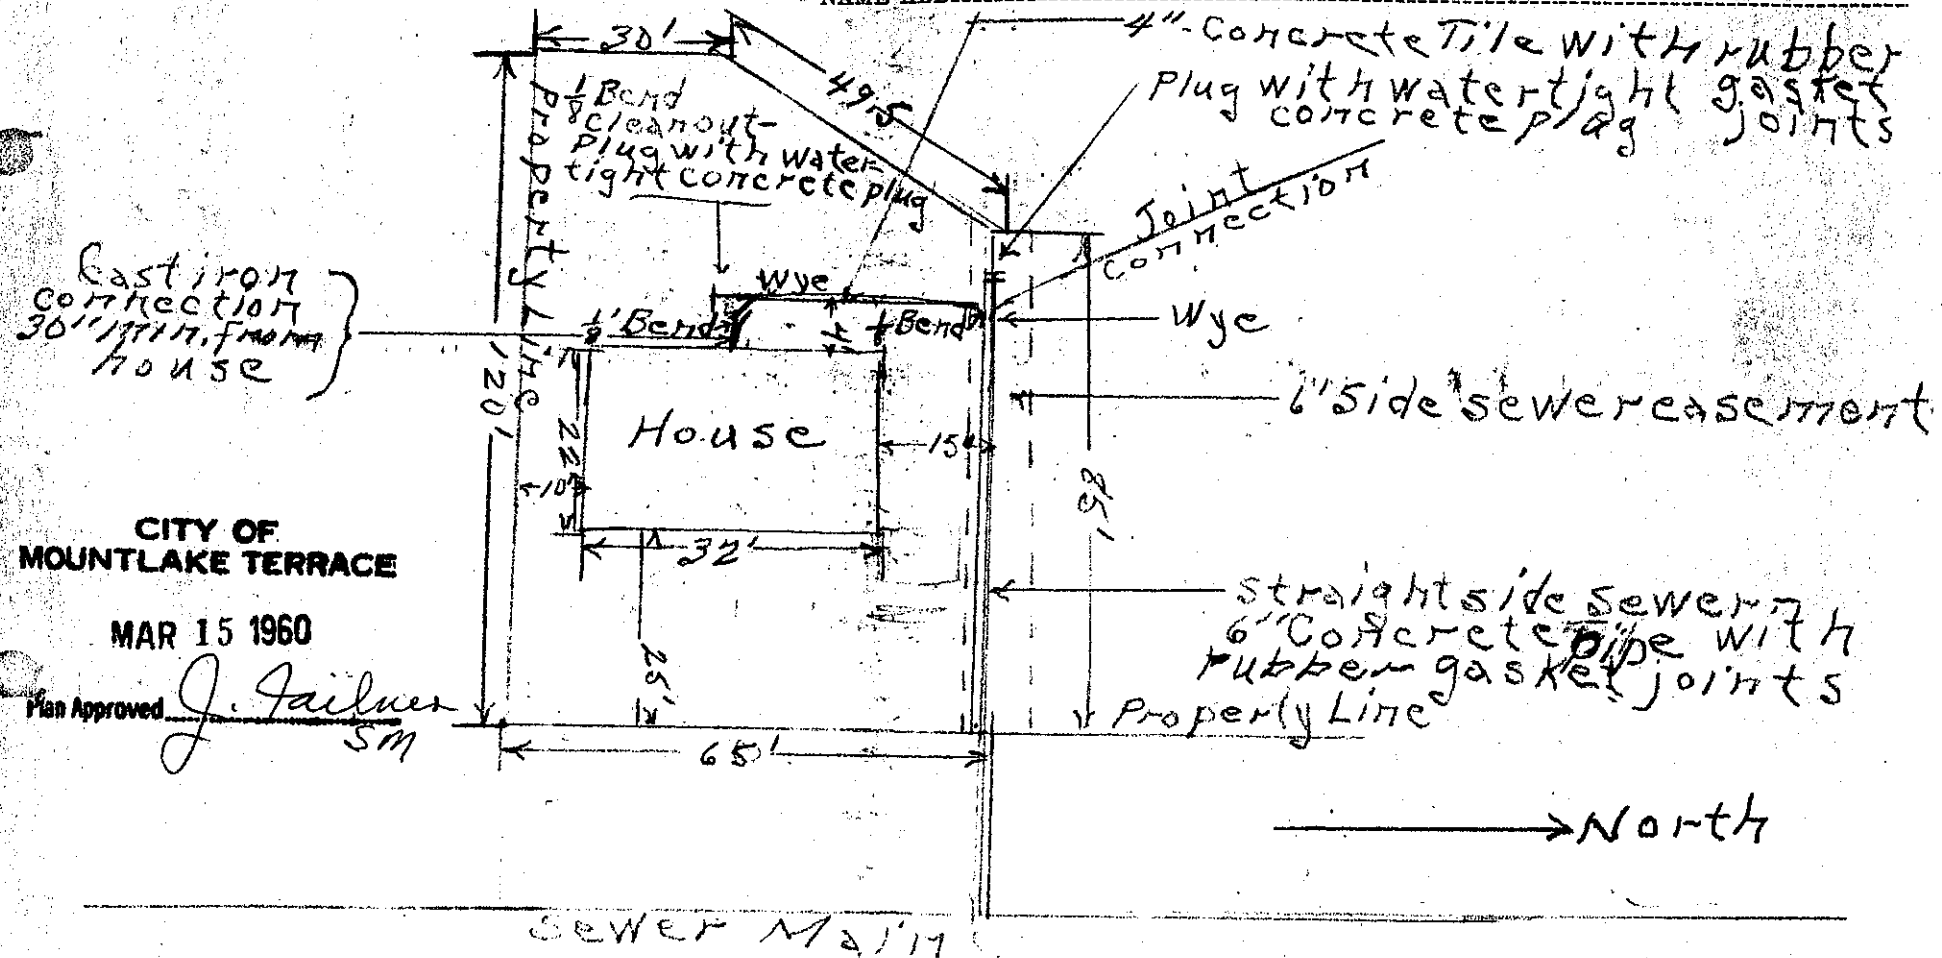 30'
49.5
4"-Concrete Tile with rubber
gasket
joints
Plug with watertight
concrete plug
1/8 Bend
Cleanout-
Plug with water-
tight concrete plug
Property Line
Joint
connection
Cast iron
connection
30" min. from
house
Wye
1/8' Bend
4'
1/8 Bend
Wye
120'
1'
22'
House
15'
10'
6" Side sewer easement
98'
32'
CITY OF
MOUNTLAKE TERRACE
MAR 15 1960
Plan Approved
SM
25'
straight side sewer
6" Concrete pipe with
rubber gasket joints
Property Line
65'
North
Sewer Main